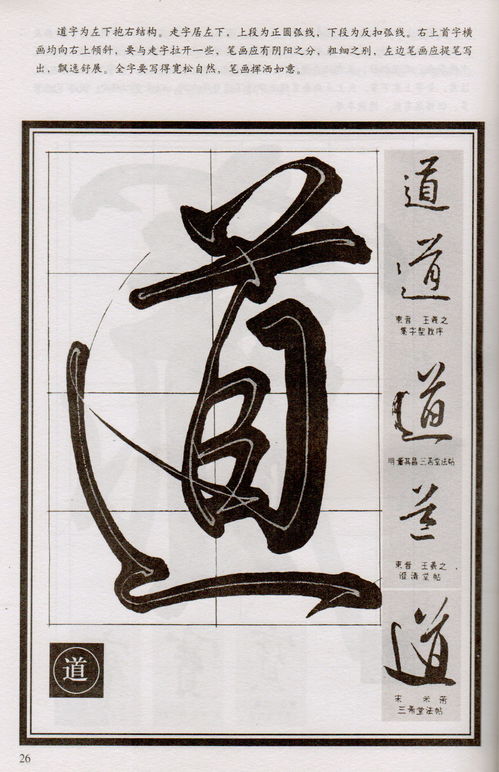 道字为左下抱右结构。走字居左下，上段为正圆弧线，下段为反扣弧线。右上首字横
画均向右上倾斜，要与走字拉开一些，笔画应有阴阳之分，粗细之别，左边笔画应提笔写
出，飘逸舒展。全字要写得宽松自然，笔画挥洒如意。
道
道
道
東晉 王羲之
集字聖教序
道
明 董其昌 三希堂法帖
道
東晉 王羲之
澄清堂帖
道
宋 米芾
三希堂法帖
道
26